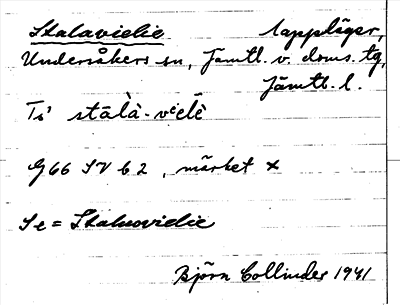 Stalavielie lappläger,
Undersåkers sn, Jämtl. v. doms. tg,
Jämtl. l.
Ts' stāl̀à-viēlē
G66 SV b 2, märket x
Se = Staluovielie
Björn Collinder 1941